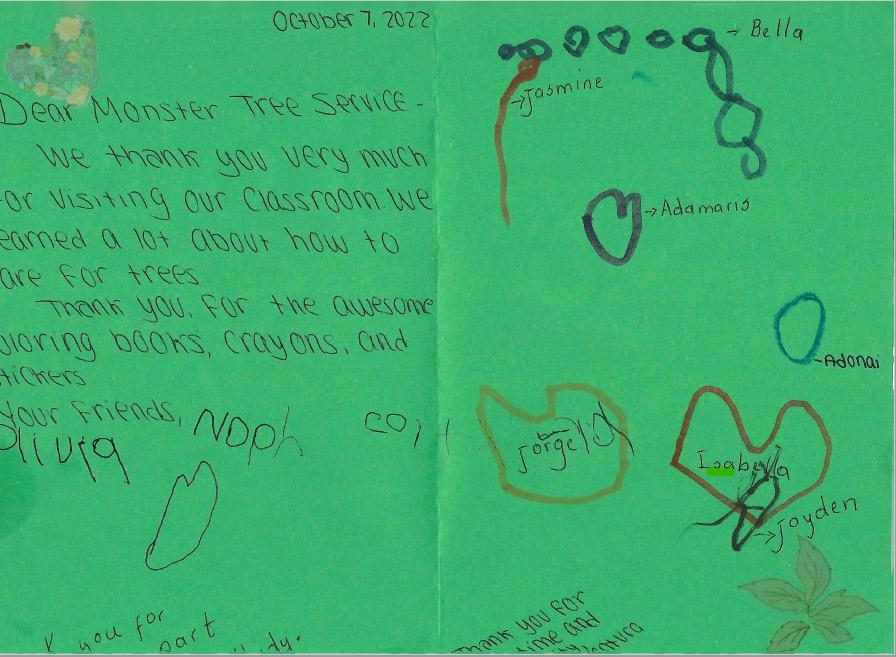 October 7, 2022
Dear Monster Tree Service -
We thank you very much
or visiting our classroom. We
earned a lot about how to
are for trees
Thank you, for the awesome
oloring books, crayons, and
tickers
your friends,
Olivia
Noah
Bella
Jasmine
Adamaris
Adonai
Isabella
Jayden
k you for
part
Thank you for
time and